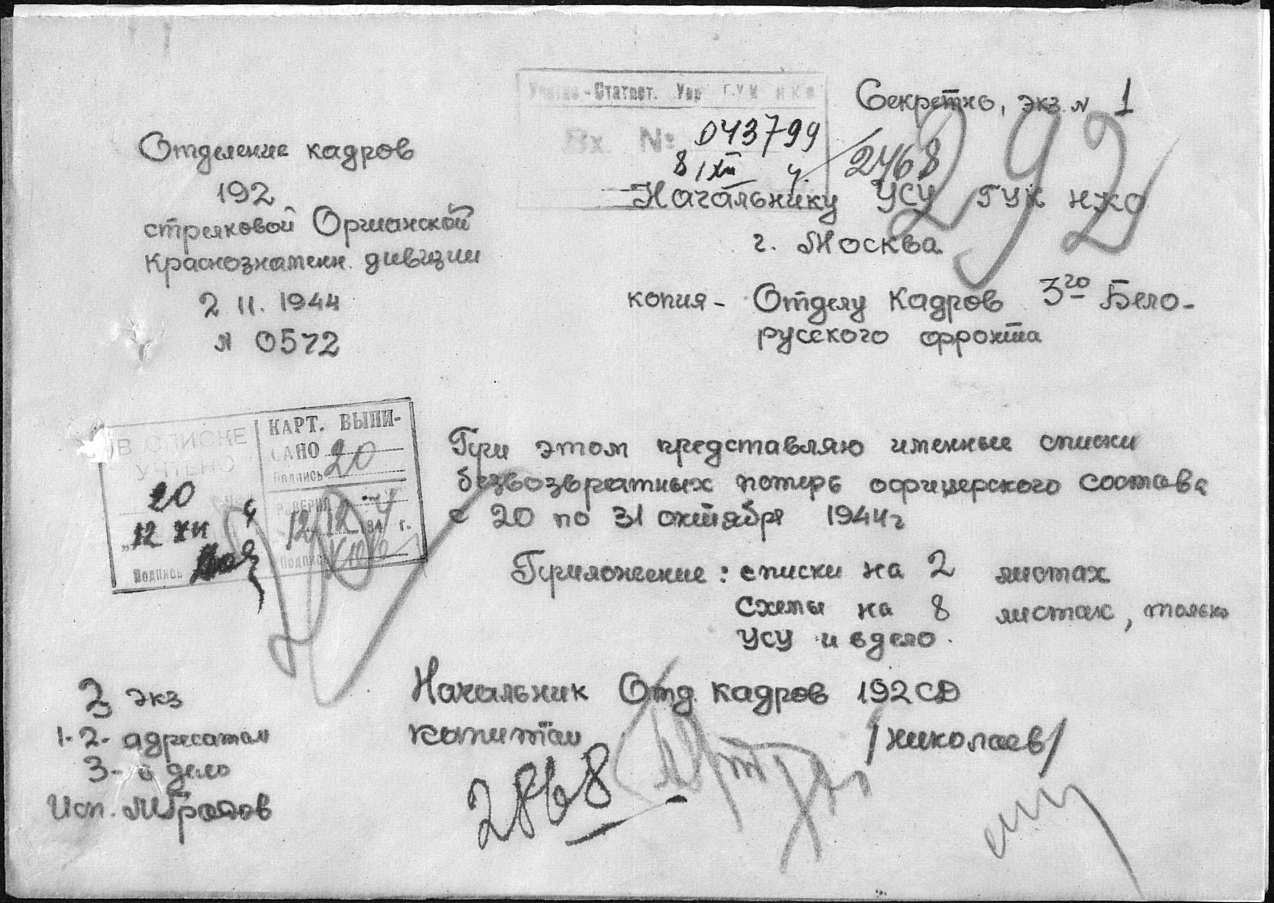 Секретно, экз. № 1
Учетно-Статист. Упр. ГУК НКО
Вх. №: 043799
8/XII 4
2468
292
Отделение кадров
192
стрелковой Оршанской
Краснознаменн. дивизии
2 11. 1944
№ 0572
Начальнику УСУ ГУК НКО
г. Москва
копия - Отделу Кадров 3го Бело-
русского фронта
В СПИСКЕ
УЧТЕНО
20
"12 XII 4
Подпись
КАРТ. ВЫПИ-
САНО 20
Подпись
12/12 194 4 г.
Подпись
При этом представляю именные списки
безвозвратных потерь офицерского состава
с 20 по 31 октября 1944г
Приложение: списки на 2 листах
Схемы на 8 листах, только
УСУ и в дело.
Начальник Отд. кадров 192 СД
капитан /Николаев/
2868
3 экз
1-2- адресатам
3- в дело
Исп.